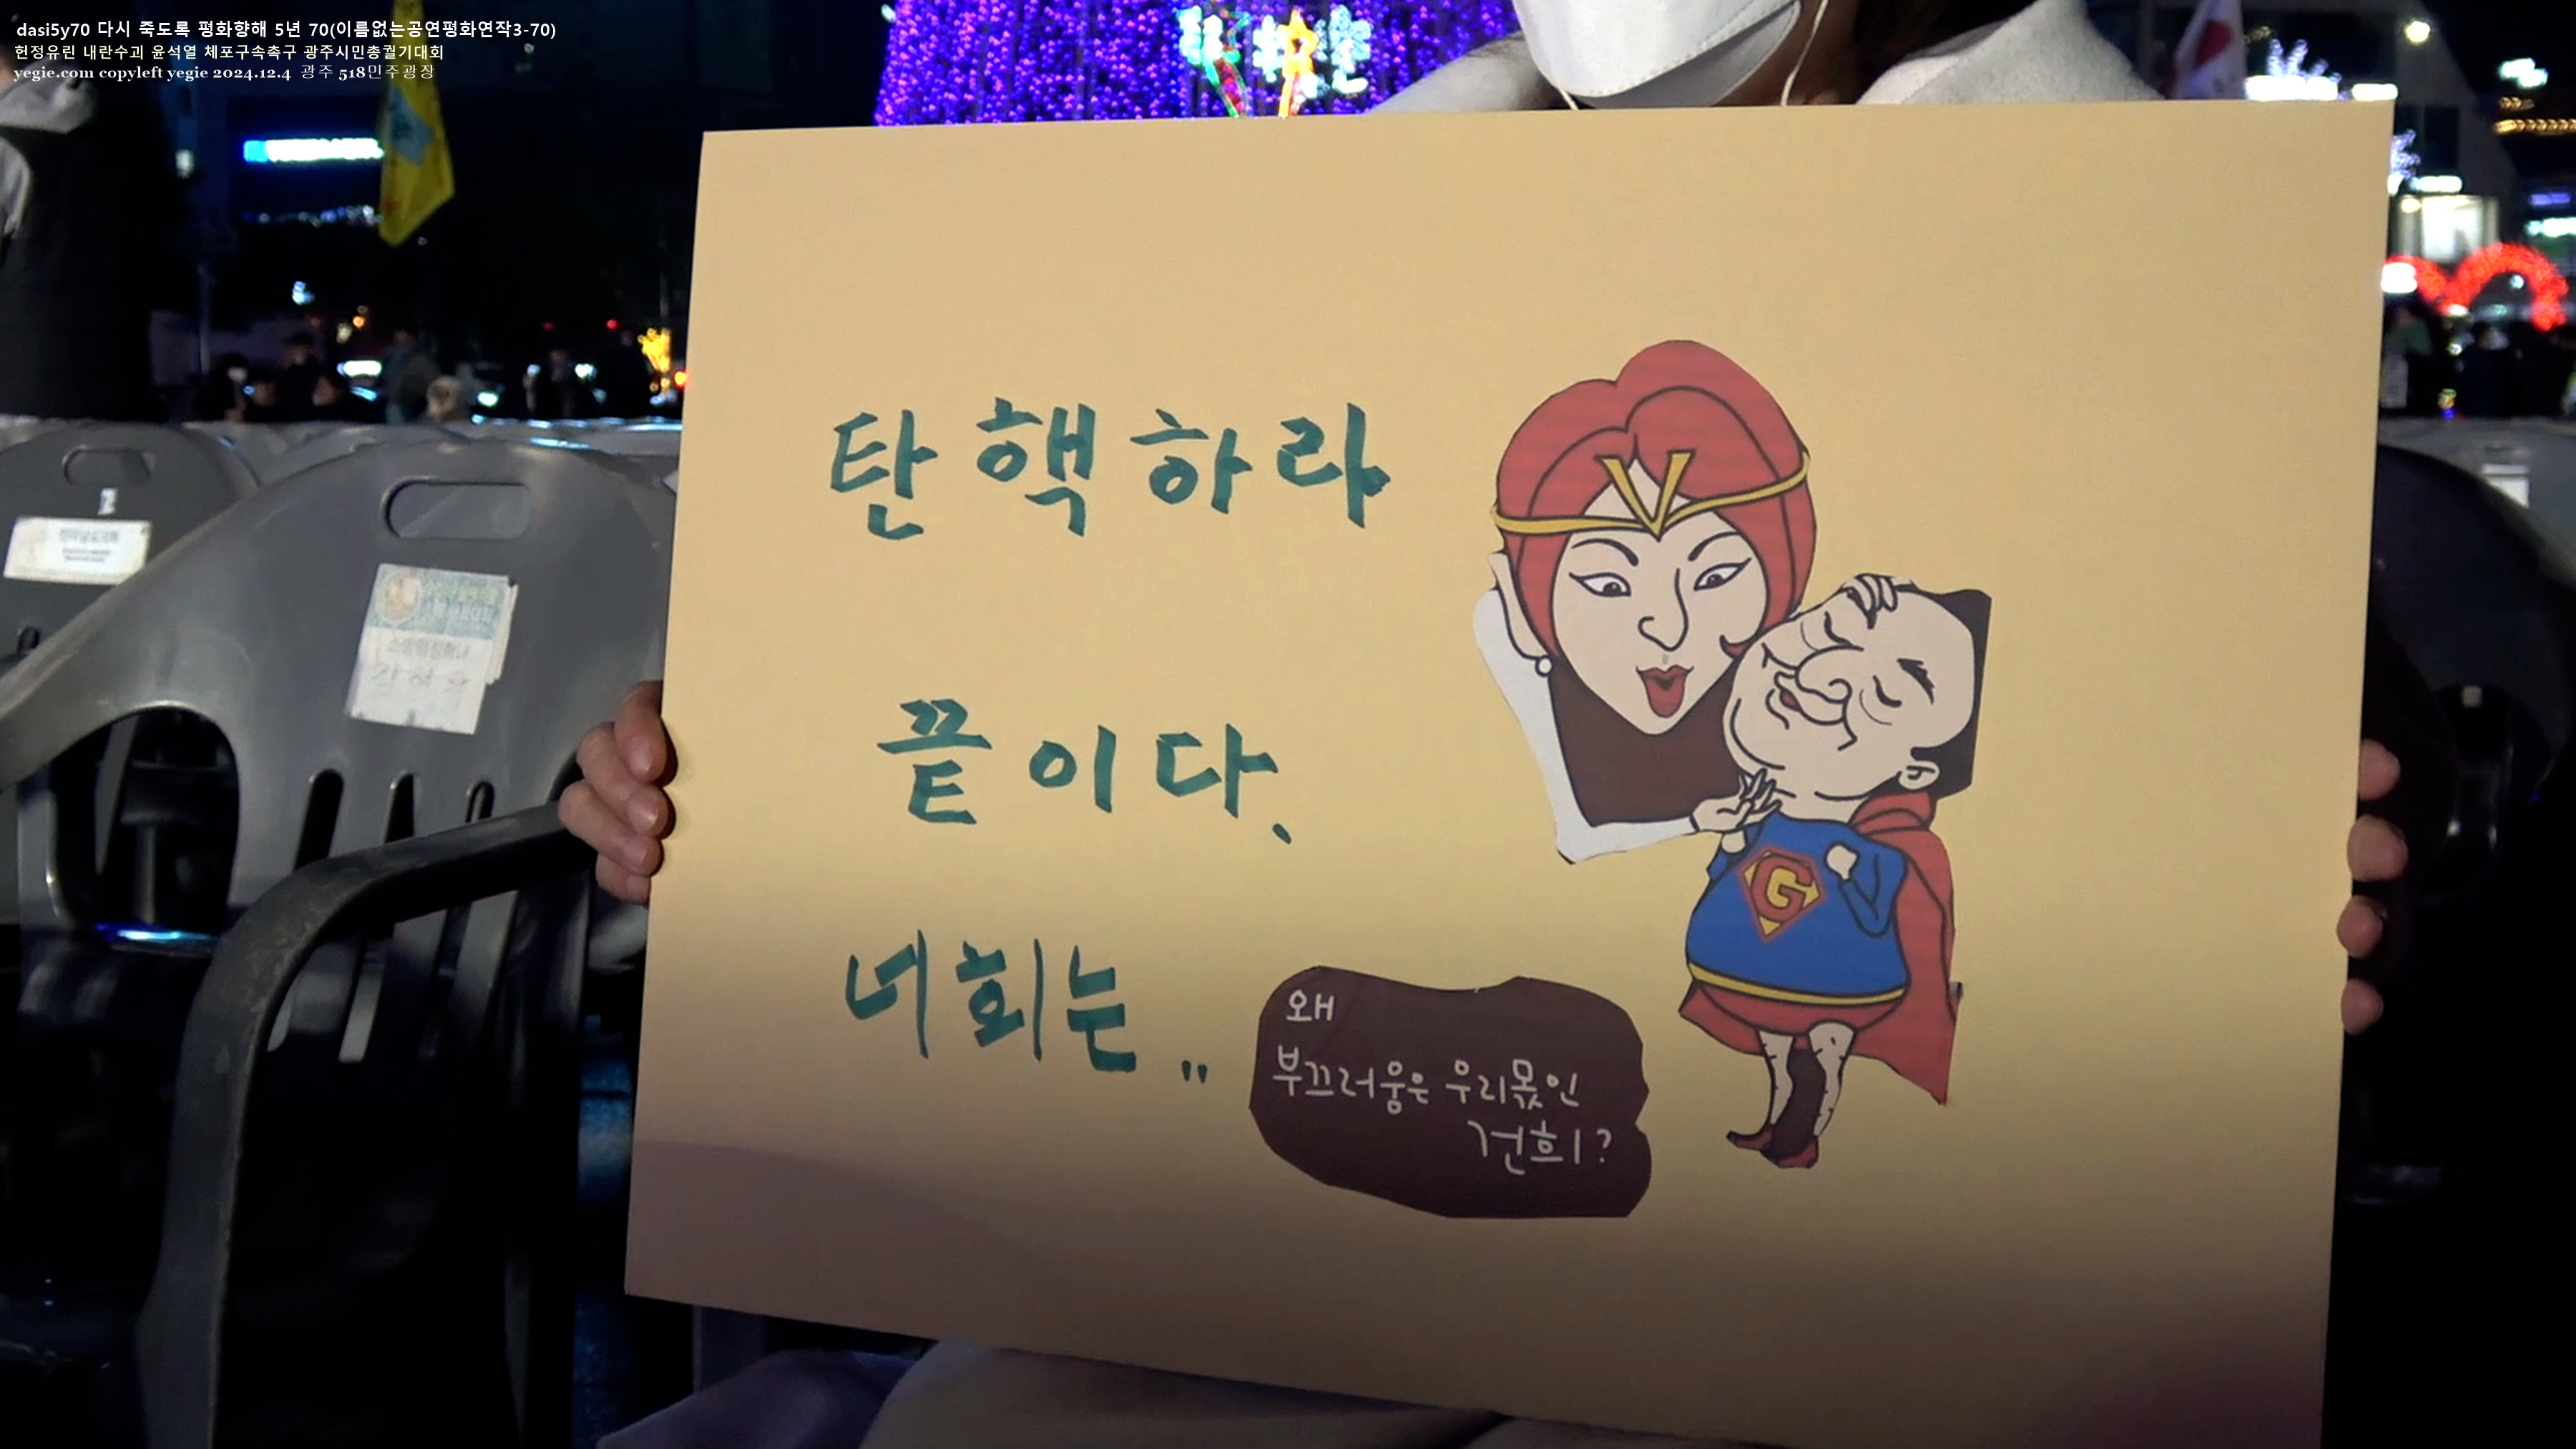 dasi5y70 다시 죽도록 평화향해 5년 70(이름없는공연평화연작3-70)
헌정유린 내란수괴 윤석열 체포구속촉구 광주시민총궐기대회
yegie.com copyleft yegie 2024.12.4 광주 518민주광장
탄핵하라
끝이다.
너희는..
왜
부끄러움은 우리몫인
건희?
G